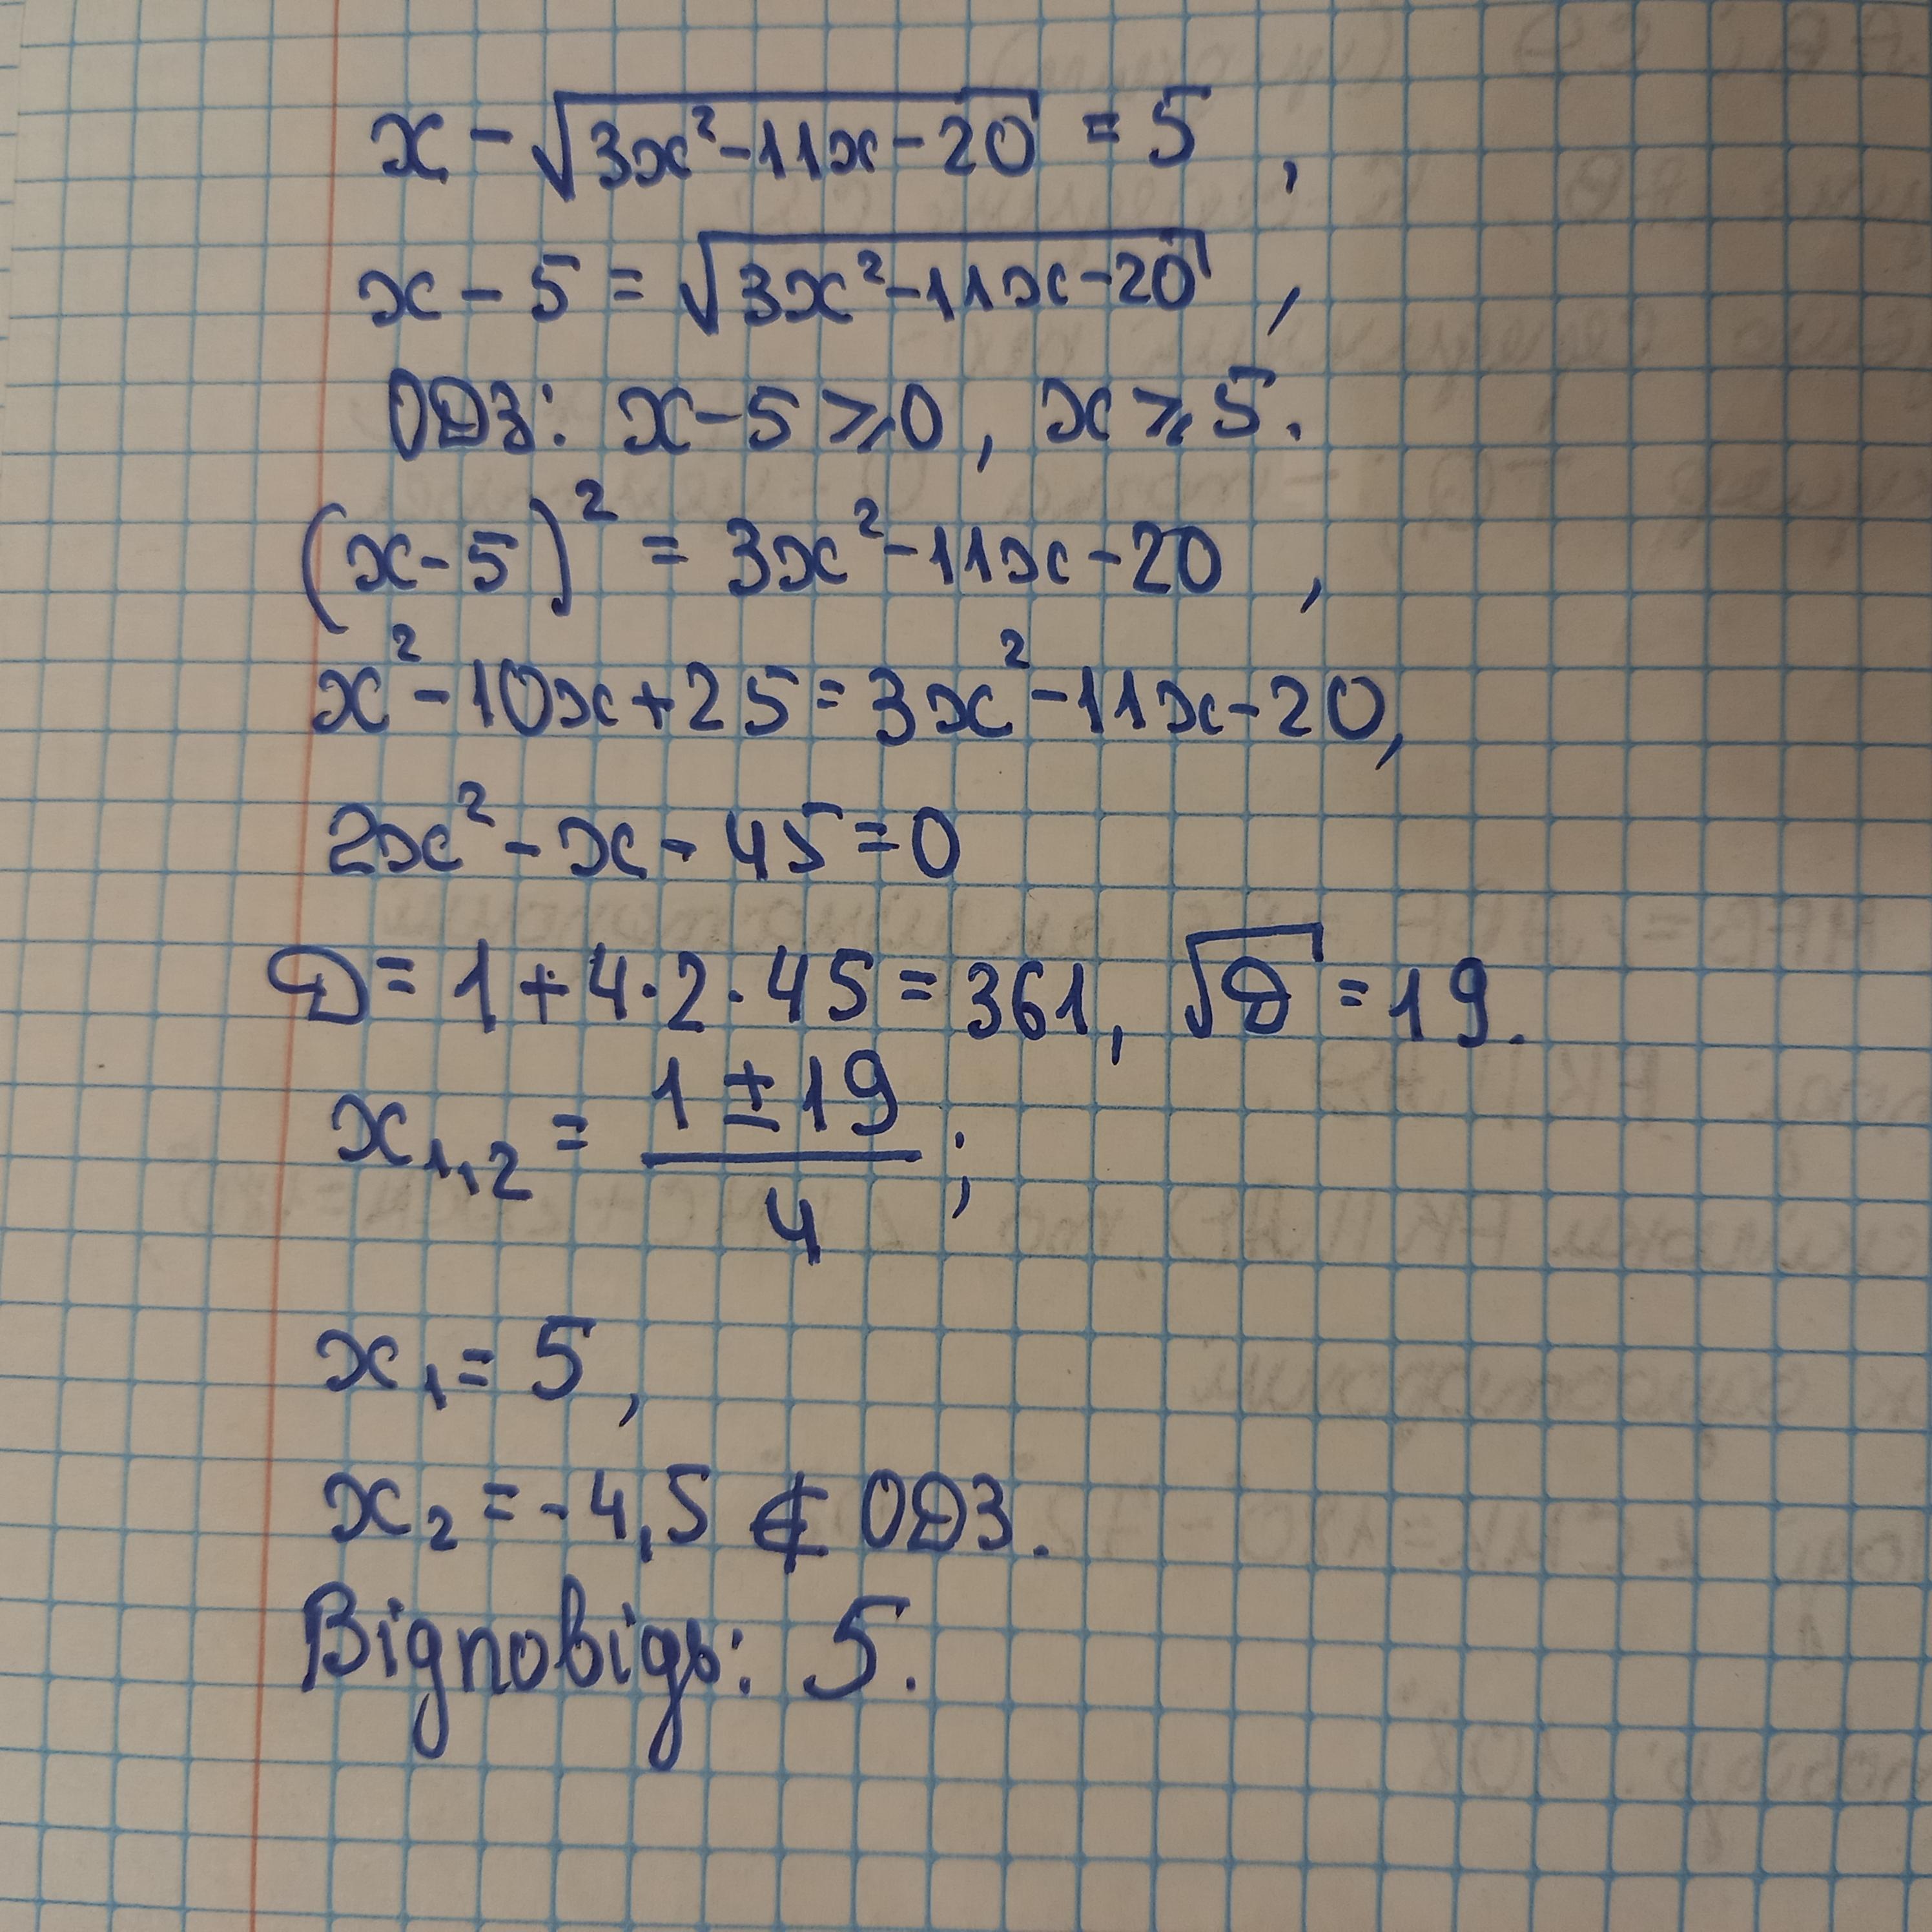 x - √(3x² - 11x - 20) = 5 ,
x - 5 = √(3x² - 11x - 20) ,
ОДЗ: x - 5 ⩾ 0 , x ⩾ 5.
(x - 5)² = 3x² - 11x - 20 ,
x² - 10x + 25 = 3x² - 11x - 20,
2x² - x - 45 = 0
D = 1 + 4 · 2 · 45 = 361, √D = 19.
x₁,₂ = (1 ± 19)/4 ;
x₁ = 5 ,
x₂ = -4,5 ∉ ОДЗ.
Відповідь: 5.